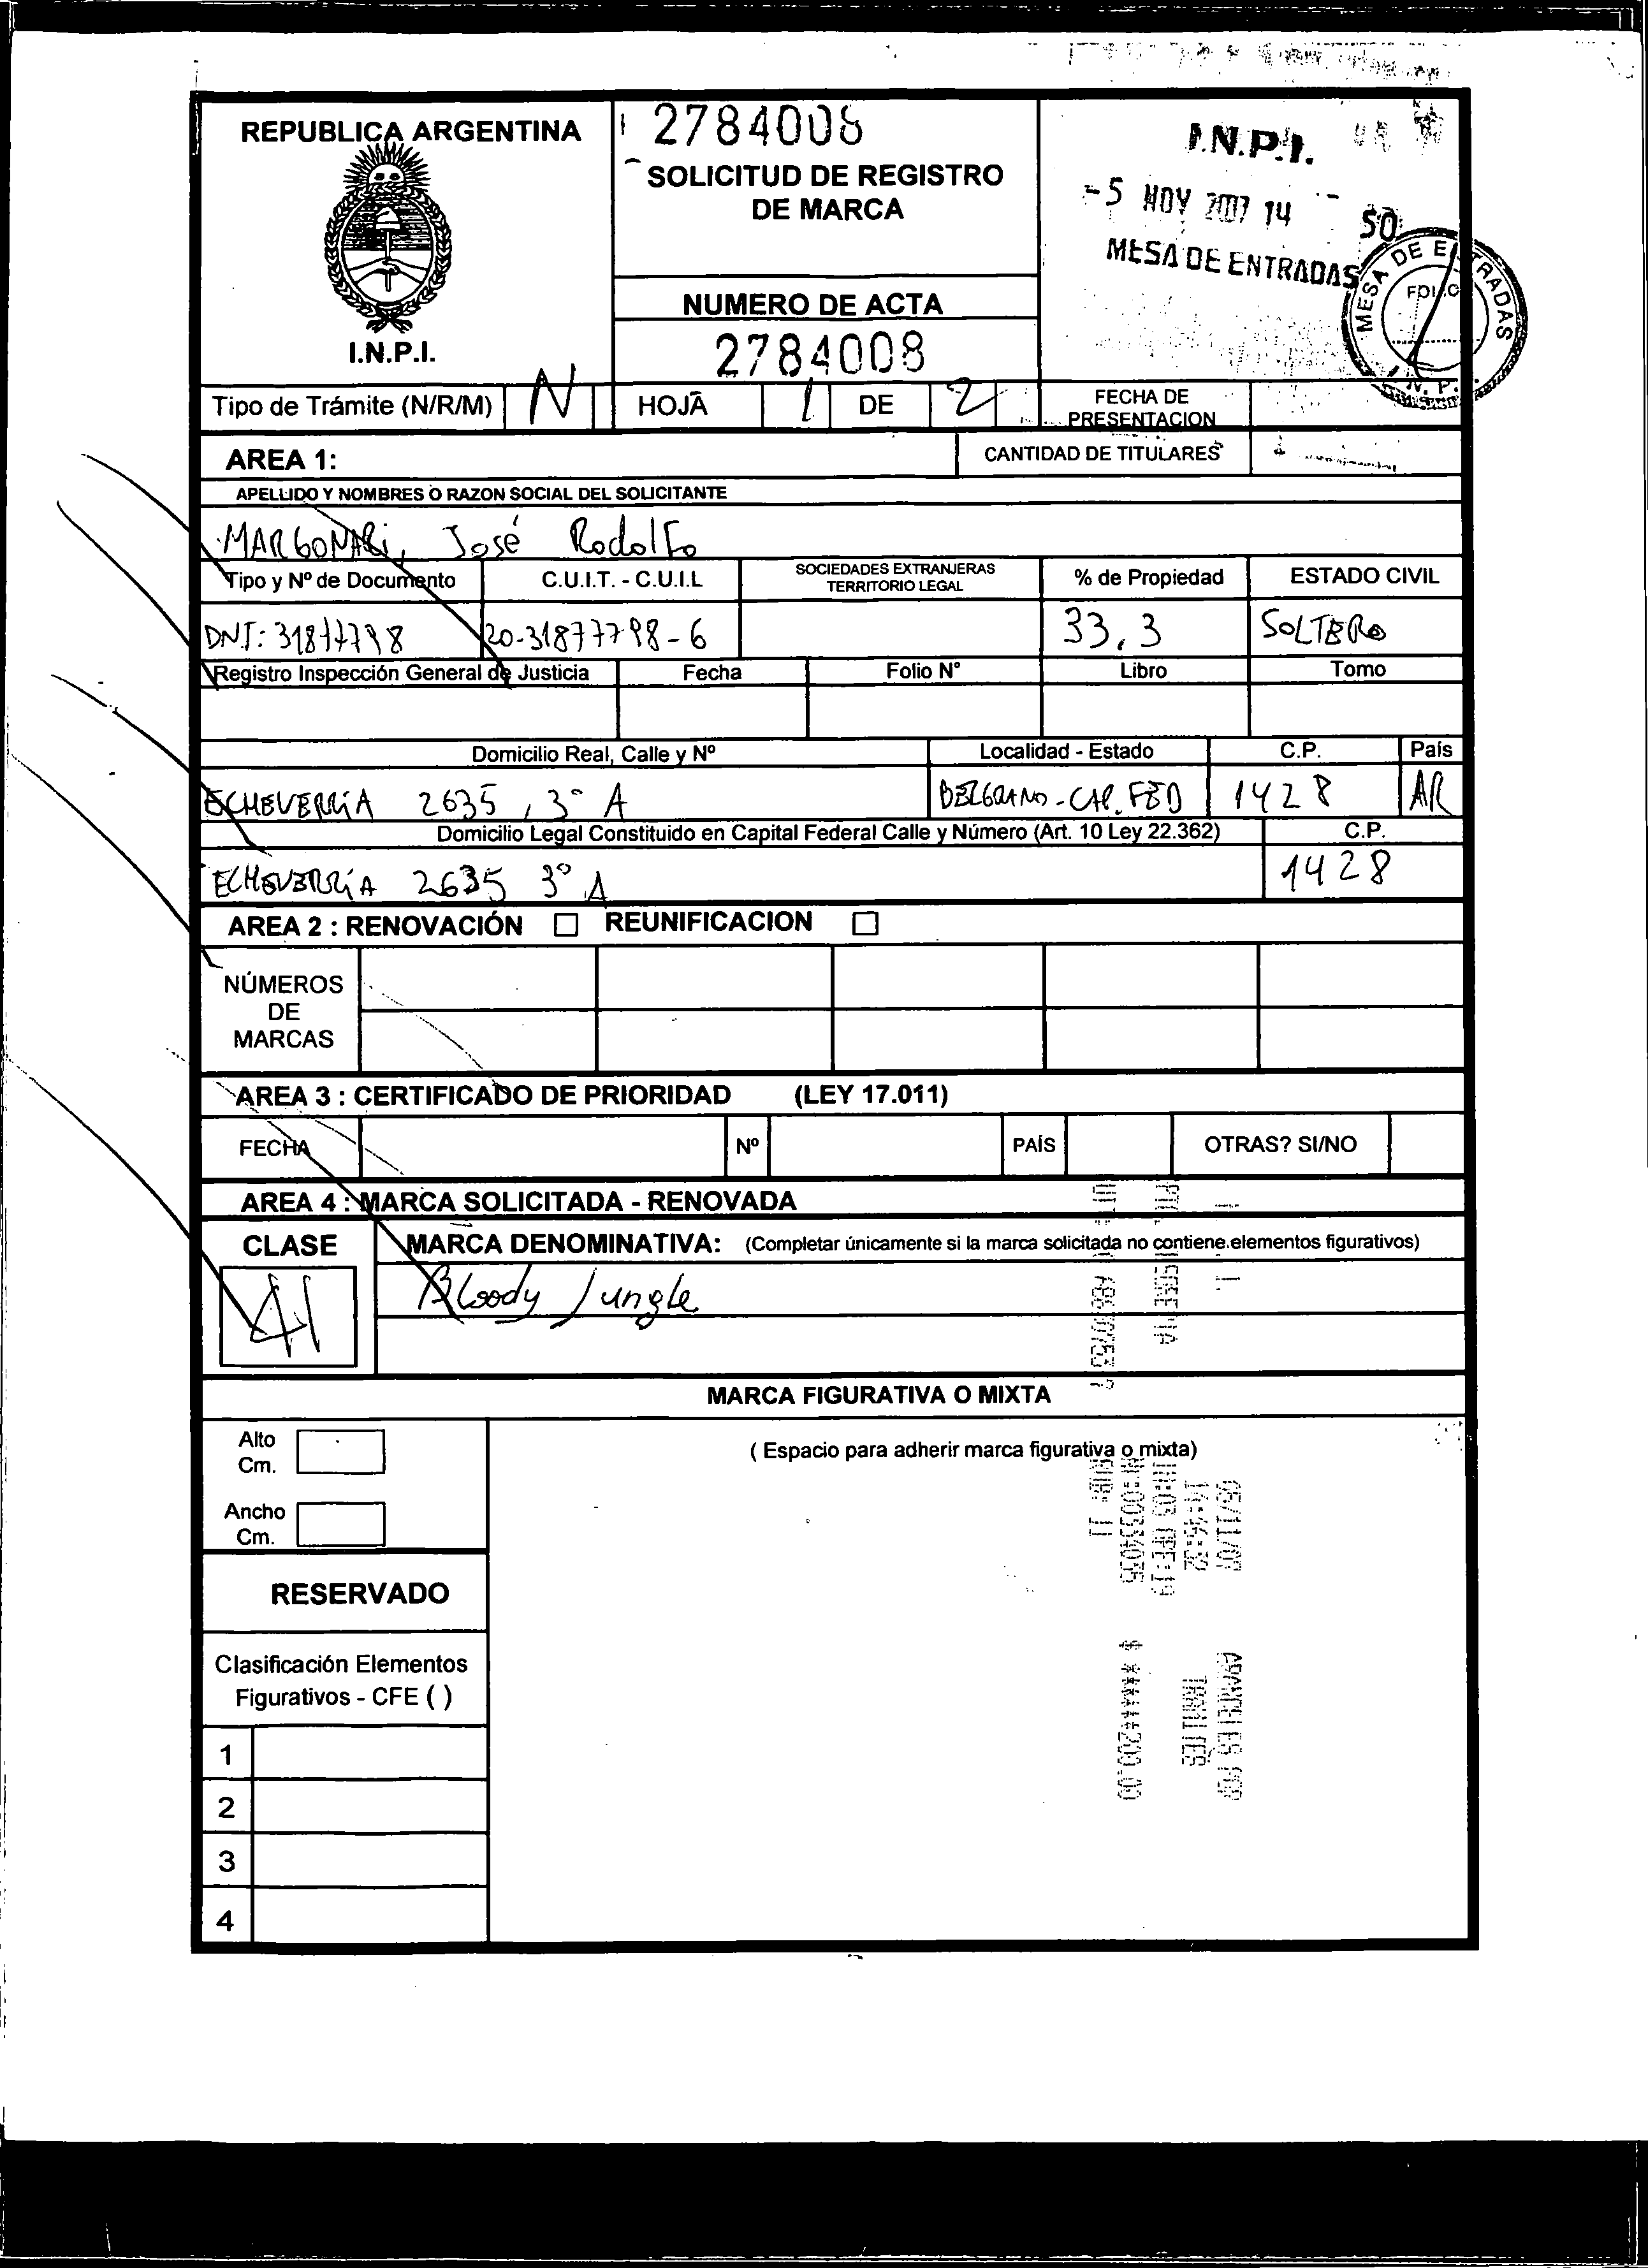 REPUBLICA ARGENTINA
I.N.P.I.
2784008
SOLICITUD DE REGISTRO
DE MARCA
NUMERO DE ACTA
2784008
I.N.P.I.
-5 NOV 2007 14 50
MESA DE ENTRADAS
MESA DE ENTRADAS
FOLIO
I.N.P.I.
Tipo de Trámite (N/R/M) N HOJA 1 DE 2 FECHA DE
PRESENTACION
AREA 1: CANTIDAD DE TITULARES
APELLIDO Y NOMBRES O RAZON SOCIAL DEL SOLICITANTE
MARGONARi, José Rodolfo
Tipo y Nº de Documento C.U.I.T. - C.U.I.L SOCIEDADES EXTRANJERAS
TERRITORIO LEGAL % de Propiedad ESTADO CIVIL
DNI: 31877798 20-31877798-6 33,3 SOLTERO
Registro Inspección General de Justicia Fecha Folio N° Libro Tomo
Domicilio Real, Calle y Nº Localidad - Estado C.P. País
ECHEVERRíA 2635, 3° A BELGRANO - CAP. FED 1428 AR
Domicilio Legal Constituido en Capital Federal Calle y Número (Art. 10 Ley 22.362) C.P.
ECHEVERRíA 2635 3° A 1428
AREA 2 : RENOVACIÓN REUNIFICACION
NÚMEROS
DE
MARCAS
AREA 3 : CERTIFICADO DE PRIORIDAD (LEY 17.011)
FECHA Nº PAÍS OTRAS? SI/NO
AREA 4 : MARCA SOLICITADA - RENOVADA
CLASE MARCA DENOMINATIVA: (Completar únicamente si la marca solicitada no contiene elementos figurativos)
41 Bloody Jungle
MARCA FIGURATIVA O MIXTA
Alto
Cm.
( Espacio para adherir marca figurativa o mixta)
Ancho
Cm.
RESERVADO
Clasificación Elementos
Figurativos - CFE ( )
1
2
3
4
05/11/07
14:46:32
ARANCELES POR
TRAMITES
$ ******200.00